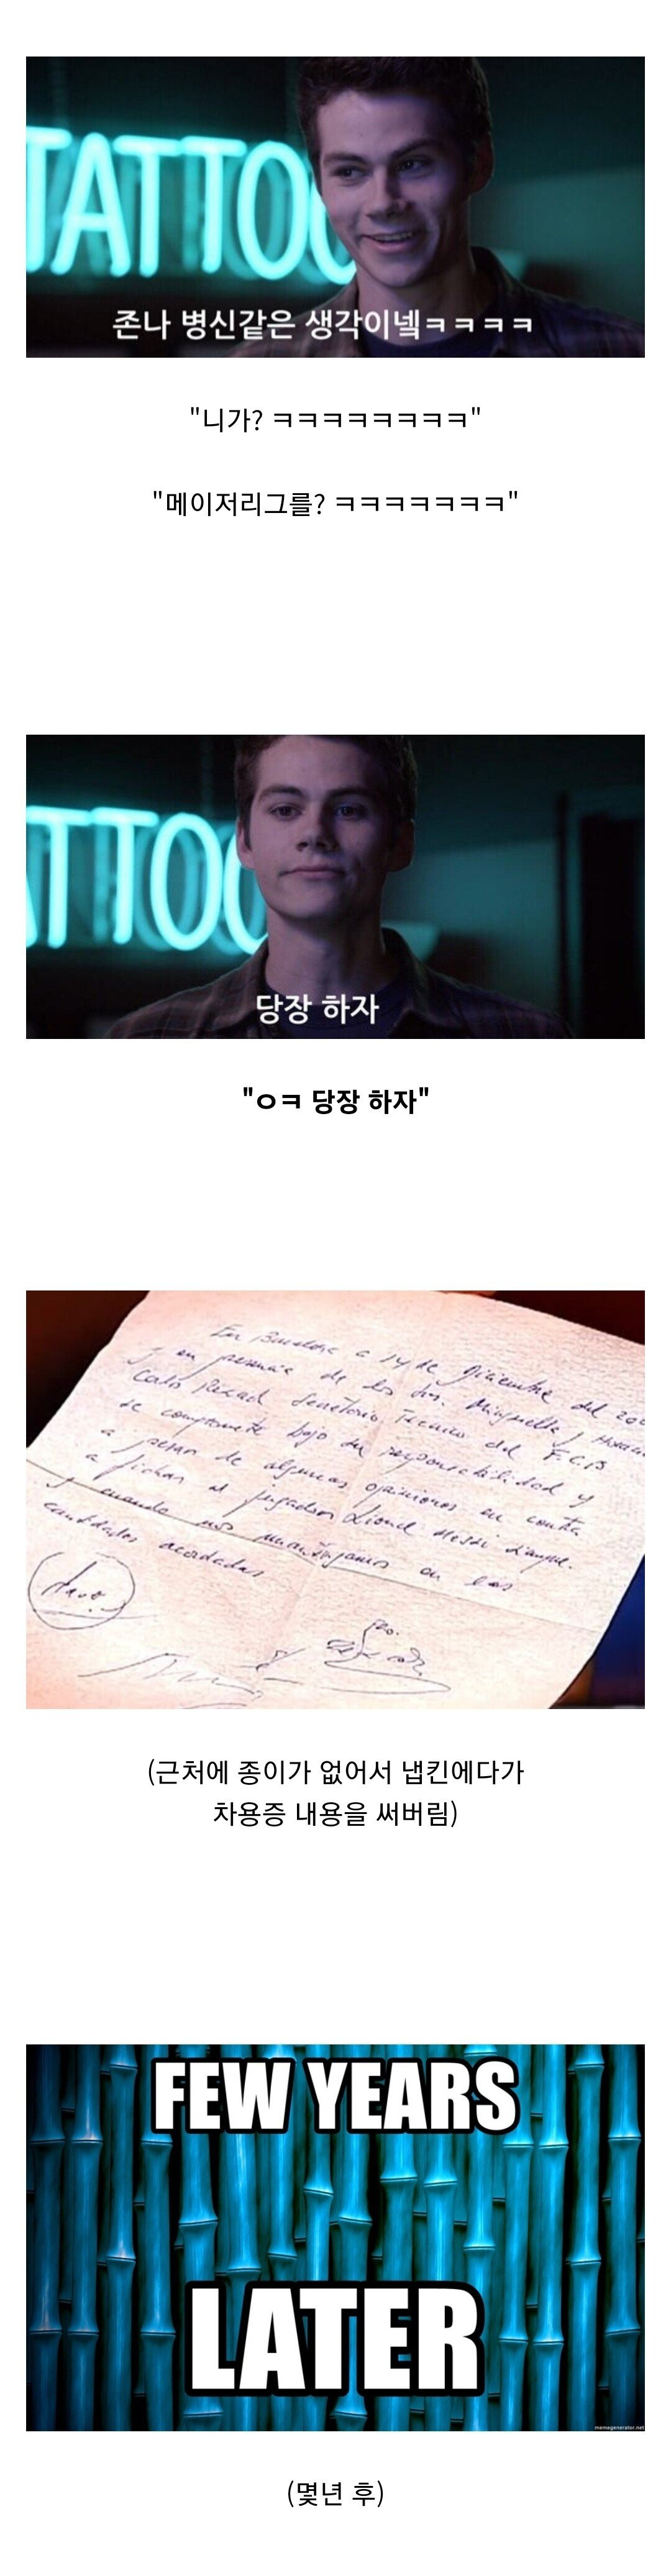 TATTOO
존나 병신같은 생각이넼ㅋㅋㅋㅋ
"니가? ㅋㅋㅋㅋㅋㅋㅋㅋ"
"메이저리그를? ㅋㅋㅋㅋㅋㅋㅋ"
ATTOO
당장 하자
"ㅇㅋ 당장 하자"
En Barcelona a 14 de diciembre del 200
y en presencia de los Srs. Minguella y Horacio
Carles Rexach Secretario Técnico del F.C.B
se compromete bajo su responsabilidad y
a pesar de algunas opiniones en contra
a fichar al jugador Lionel Messi siempre
y cuando nos mantengamos en las
cantidades acordadas
(근처에 종이가 없어서 냅킨에다가
차용증 내용을 써버림)
FEW YEARS
LATER
memegenerator.net
(몇년 후)